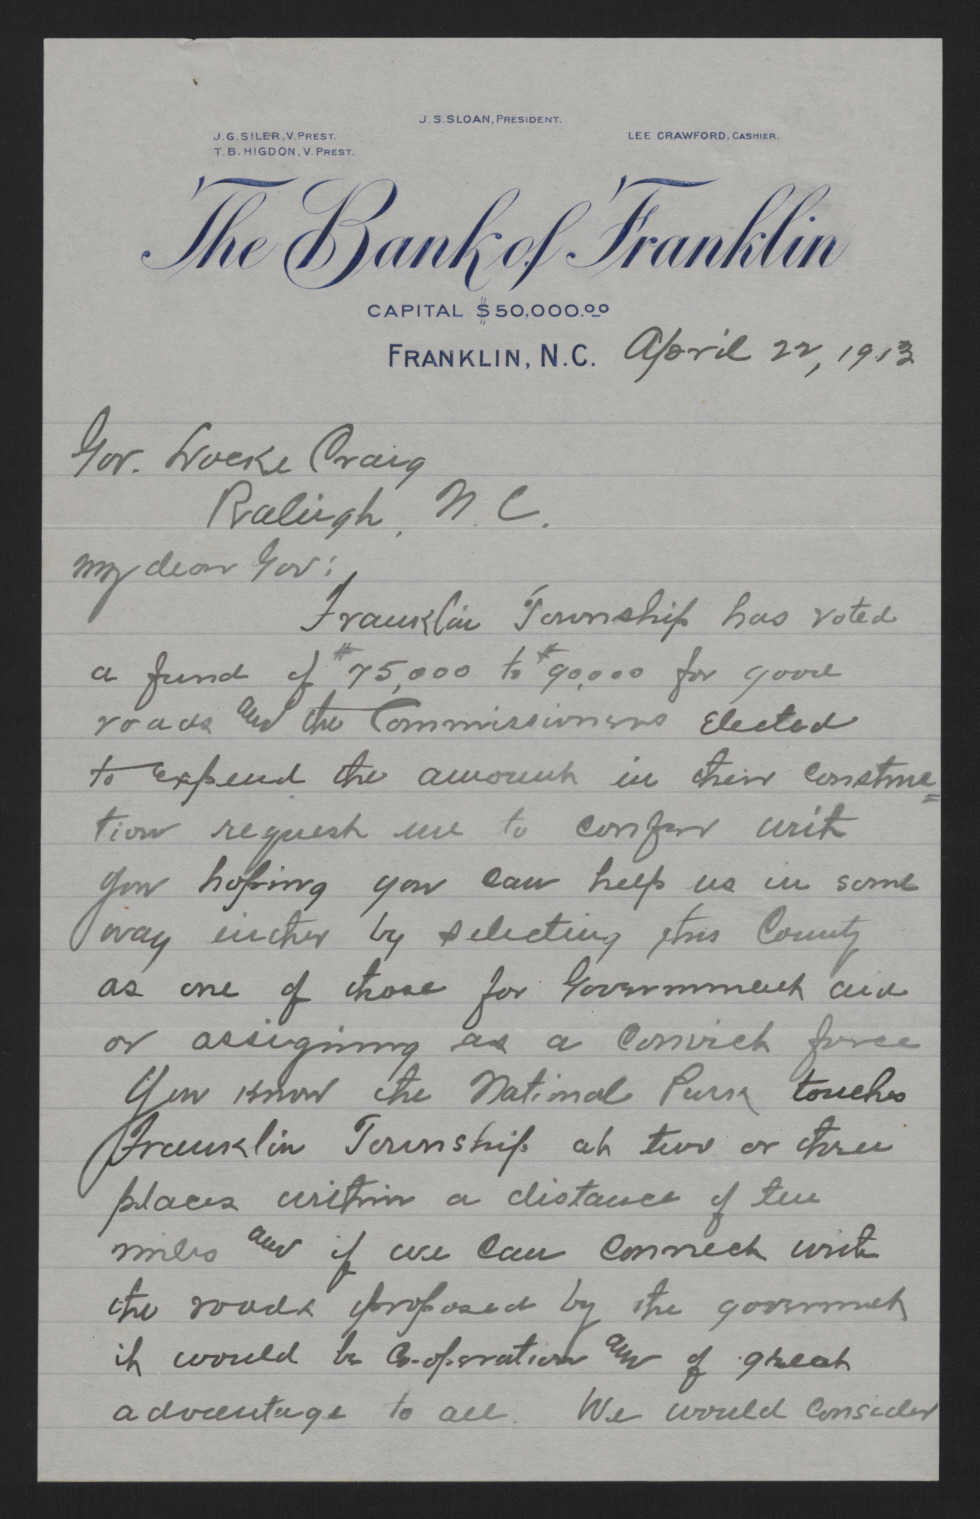 J. S. SLOAN, PRESIDENT.
J. G. SILER, V. PREST.
T. B. HIGDON, V. PREST.
LEE CRAWFORD, CASHIER.
The Bank of Franklin
CAPITAL $50,000.00
FRANKLIN, N.C. April 22, 1913
Gov. Locke Craig
Raleigh, N. C.
My dear Gov:
Franklin Township has voted
a fund of $75,000 to $90,000 for good
roads and the Commissioners elected
to expend the amount in their construc=
tion request me to confer with
you hoping you can help us in some
way either by selecting this County
as one of those for Government aid
or assigning as a Convict force
You know the National Park touches
Franklin Township at two or three
places within a distance of ten
miles and if we can connect with
the roads proposed by the government
it would be Co-operation and of great
advantage to all. We would consider